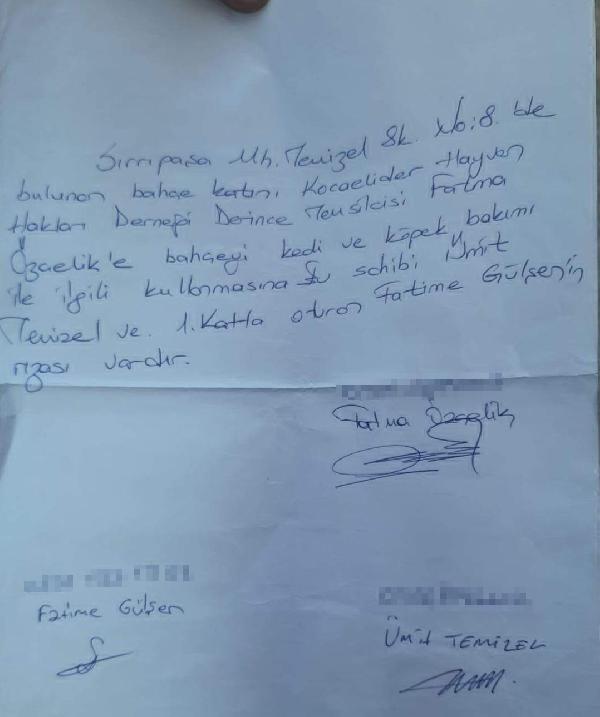 Sırrıpaşa Mh. Temizel Sk. No:8. de
bulunan bahçe katını Kocaelider Hayvan
Hakları Derneği Derince Temsilcisi Fatma
Özçelik'e bahçeyi kedi ve köpek bakımı
ile ilgili kullanmasına Ev sahibi Ümit
Temizel ve 1. Katta oturan Fatime Gülşen'in
rızası vardır.
Fatma Özçelik
Fatime Gülşen
Ümit TEMİZEL